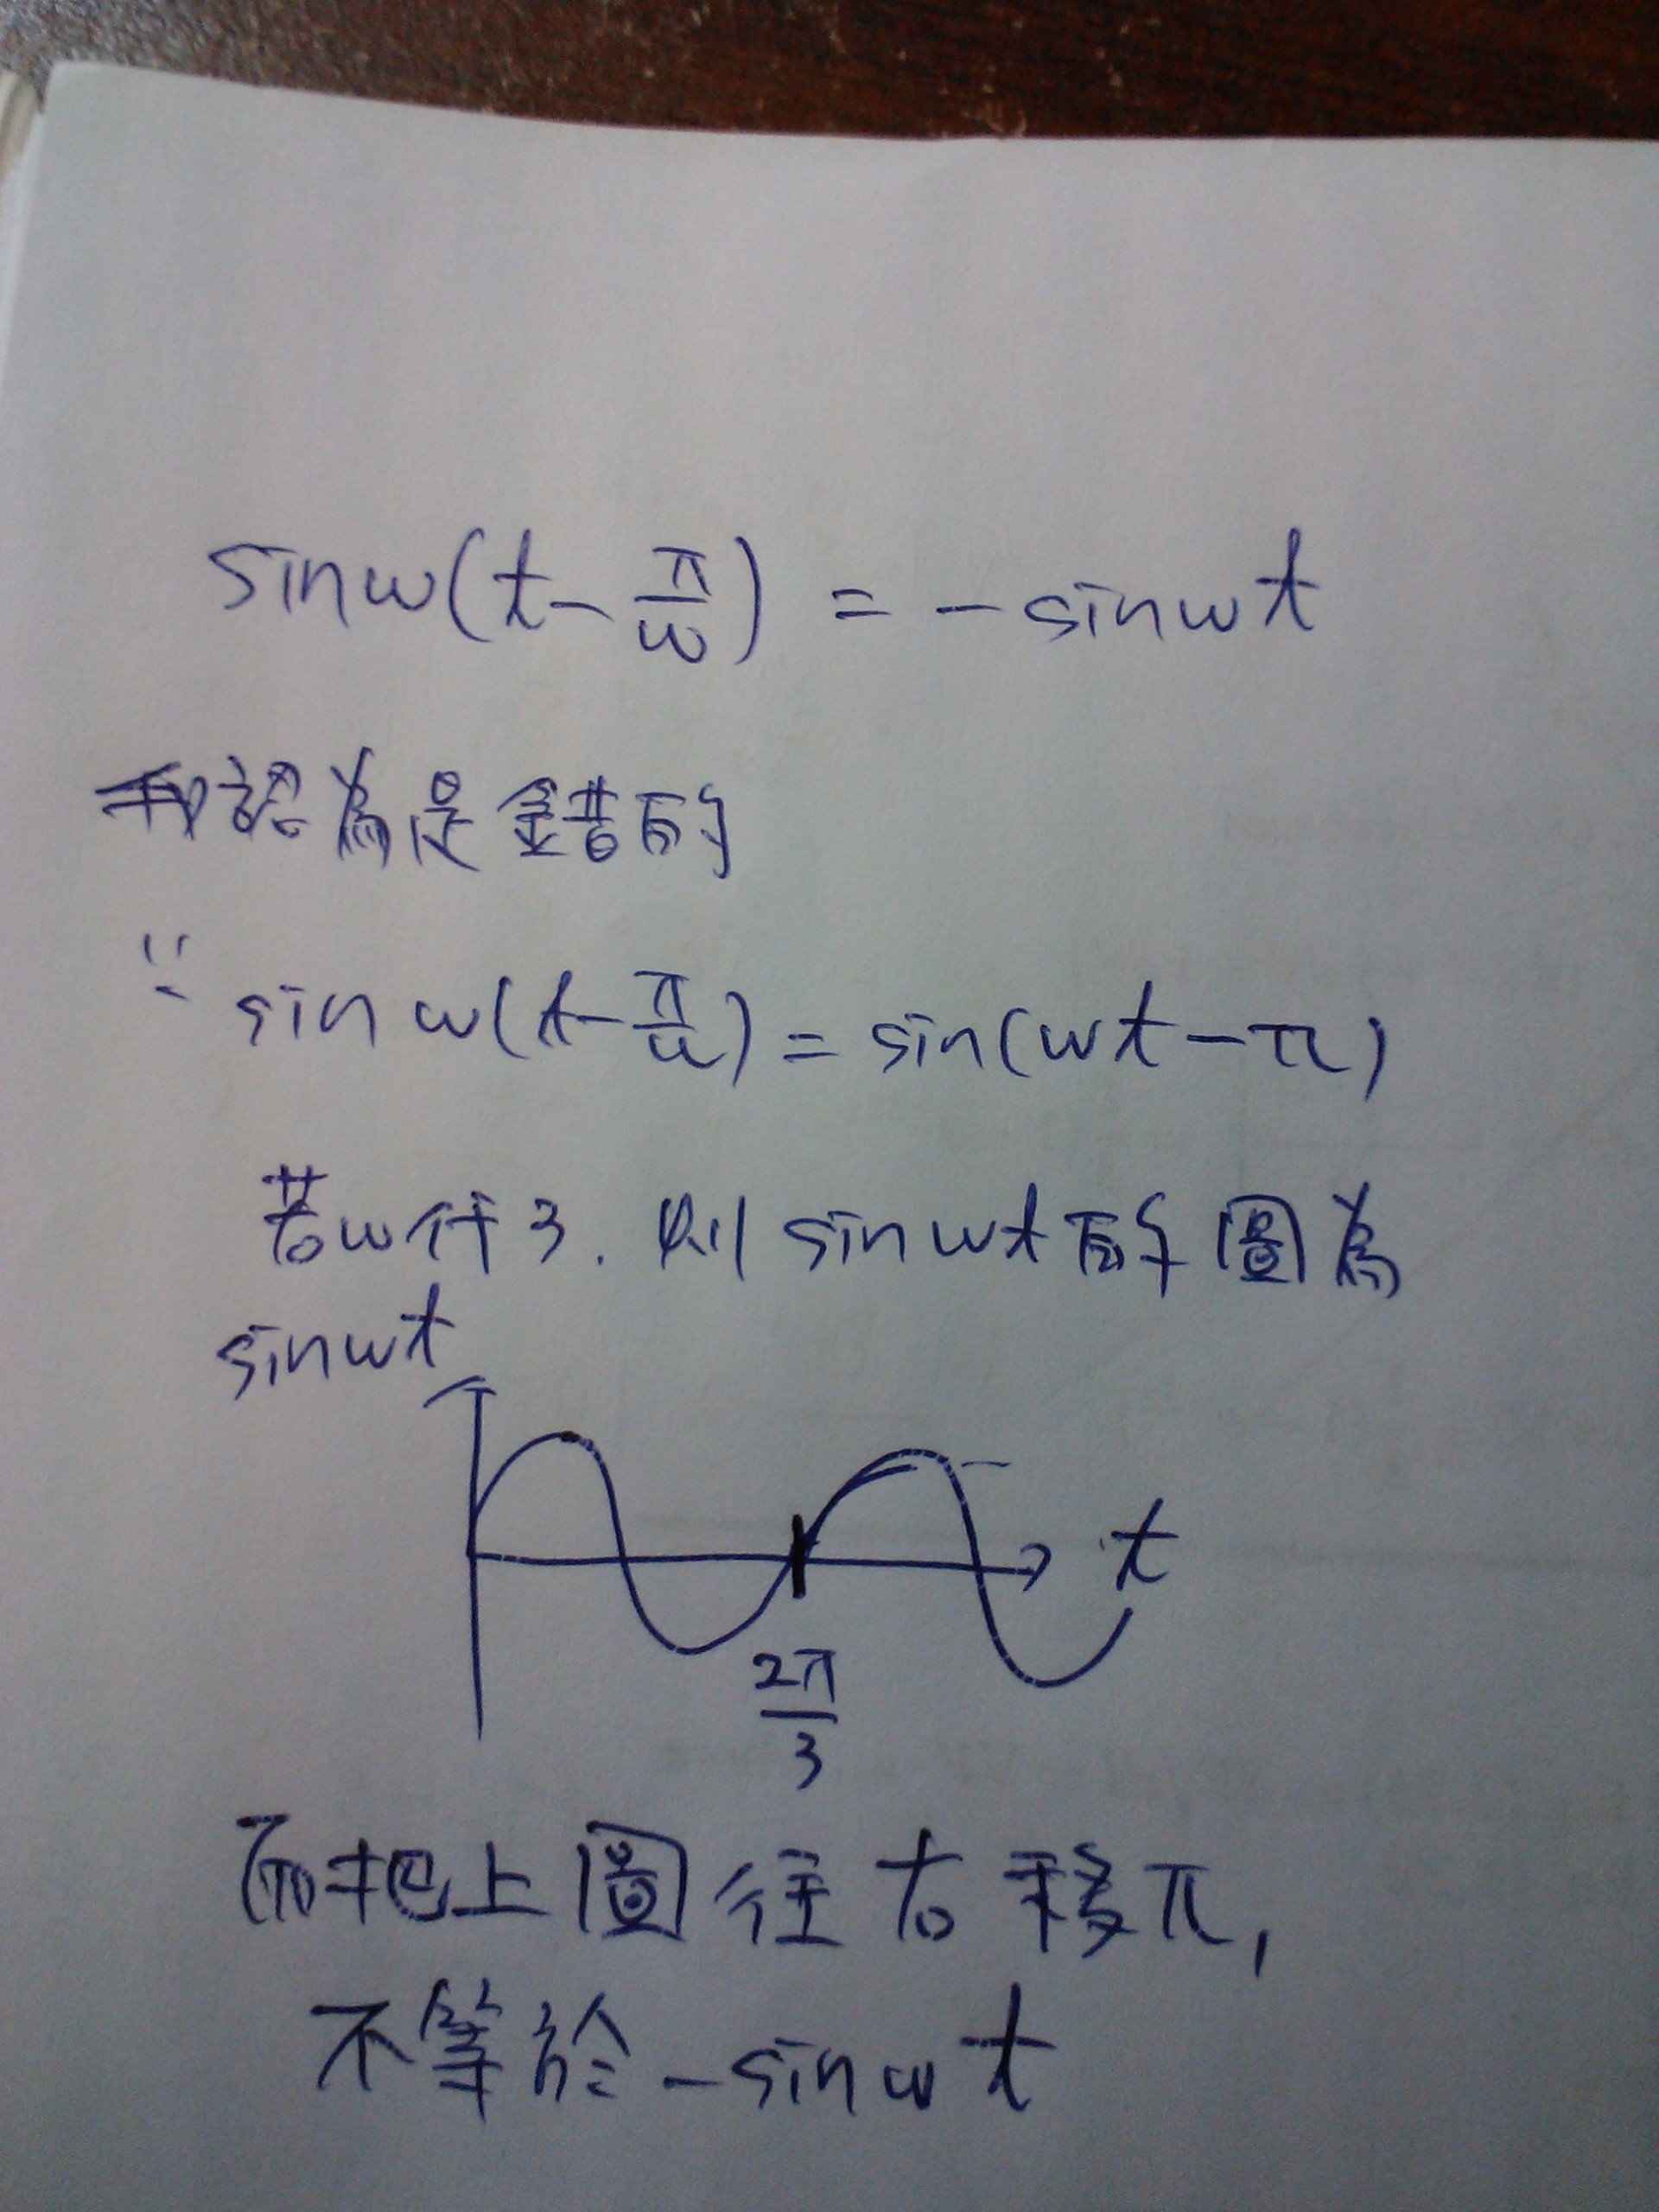 sinw(t-π/w) = -sinwt
我認為是錯的
∵ sin w(t-π/w) = sin(wt-π)
若w代3. 則 sinwt的圖為
sinwt
t
2π/3
而把上圖往右移π,
不等於 -sinwt